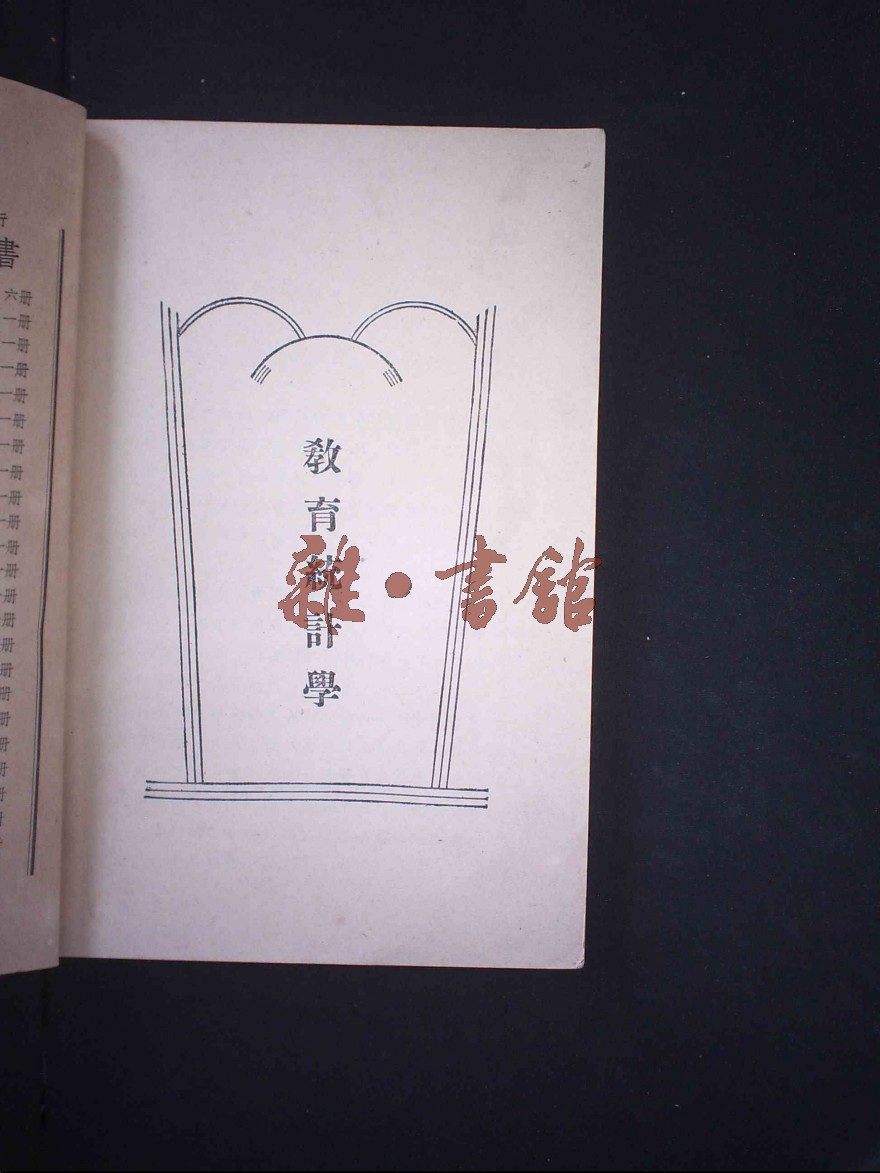 教育統計學
雜·書館
行
書
六册
一册
一册
一册
一册
一册
一册
一册
一册
一册
一册
一册
册
册
册
册
册
册
册
册
册